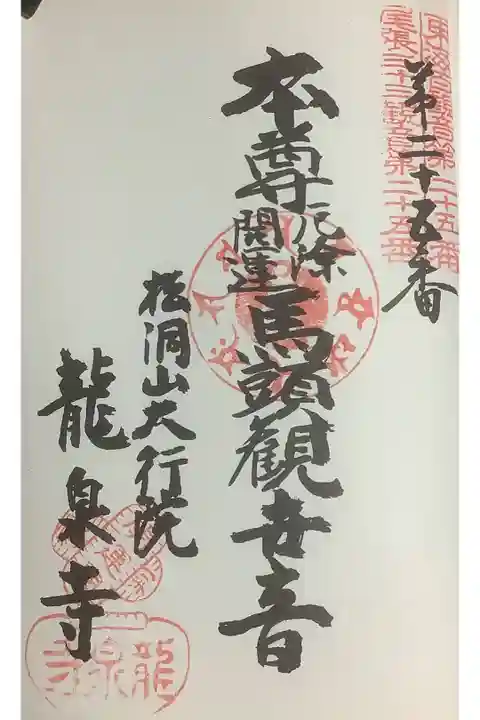 東海百観音第二十五番
尾張三十三観音第二十五番
第二十五番
本尊
厄除
開運
馬頭観世音
松洞山大行院
龍泉寺
龍泉寺